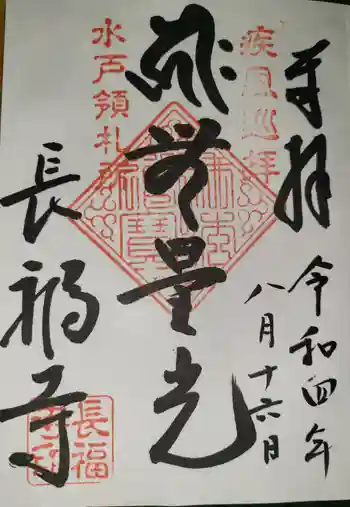 奉拝
令和四年
八月十六日
疾風巡拝
無量光
水戸領札所
長福寺
長福寺印